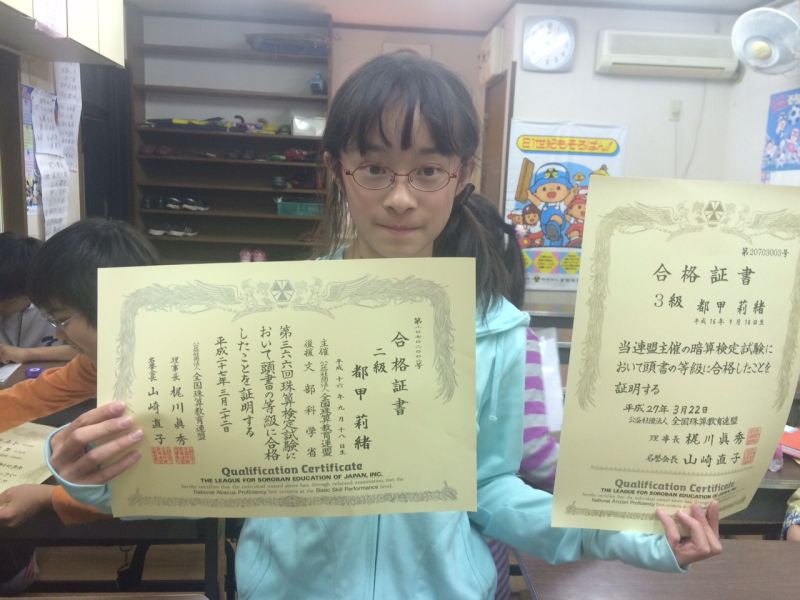 21世紀もそろばん!
合格証書
二級
都甲莉緒
平成十六年九月十八日生
主催 公益社団法人 全国珠算教育連盟
後援 文部科学省
第三六六回珠算検定試験に
おいて頭書の等級に合格
したことを証明する
平成二十七年三月二十二日
公益社団法人 全国珠算教育連盟
理事長 梶川眞秀
名誉会長 山崎直子
Qualification Certificate
THE LEAGUE FOR SOROBAN EDUCATION OF JAPAN, INC.
hereby certifies that the individual named above has, through referred examination, met the
National Abacus Proficiency test criteria at the Basic Skill Performance level.
第20703003号
合格証書
3級 都甲莉緒
平成16年9月18日生
当連盟主催の暗算検定試験に
おいて頭書の等級に合格したことを
証明する
平成27年3月22日
公益社団法人 全国珠算教育連盟
理事長 梶川眞秀
名誉会長 山崎直子
Qualification Certificate
THE LEAGUE FOR SOROBAN EDUCATION OF JAPAN, INC.
hereby certifies that the individual named above has, through
National Anzan Proficiency